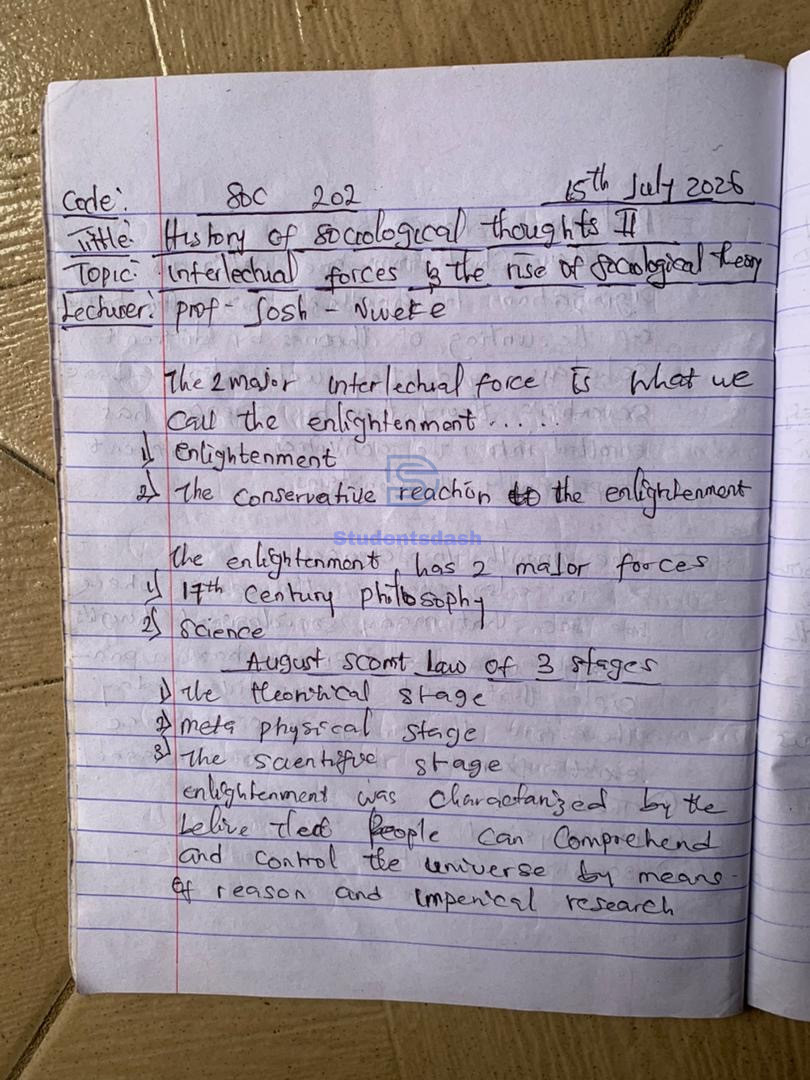 Code: SOC 202 15th July 2026
Tittle: History of sociological thoughts II
Topic: interlectual forces & the rise of sociological theory
Lecturer: prof - Josh - Nweke
The 2 major interlectual force is what we
call the enlightenment......
1) enlightenment
2) The conservative reaction to the enlightenment
Studentsdash
the enlightenment, has 2 major forces
1) 17th century philosophy
2) science
August scomt law of 3 stages
1) the theoritical stage
2) meta physical stage
3) the scientific stage
enlightenment was charactarized by the
belive that people can comprehend
and control the universe by means
of reason and imperical research